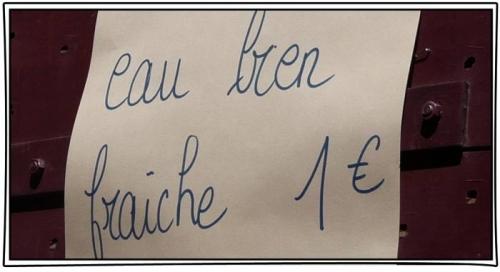 eau bien
fraiche 1 €